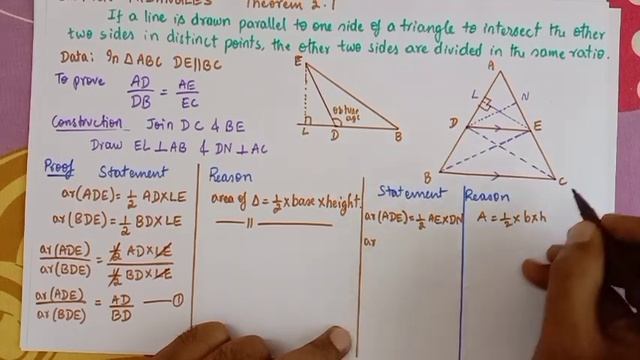 Theorem 2.1
If a line is drawn parallel to one side of a triangle to intersect the other
two sides in distinct points, the other two sides are divided in the same ratio.
Data: In △ABC DE∥BC
To prove AD/DB = AE/EC
Construction Join DC & BE
Draw EL⊥AB & DN⊥AC
E
obtuse
L D B
A
L N
D E
B C
Proof Statement
ar(ADE)=1/2 AD×LE
ar(BDE)=1/2 BD×LE
ar(ADE)/ar(BDE) = 1/2 AD×LE / 1/2 BD×LE
ar(ADE)/ar(BDE) = AD/BD — ①
Reason
area of Δ=1/2×base×height.
—— 11 ——
Statement
ar(ADE)=1/2 AE×DN
ar
Reason
A=1/2×b×h